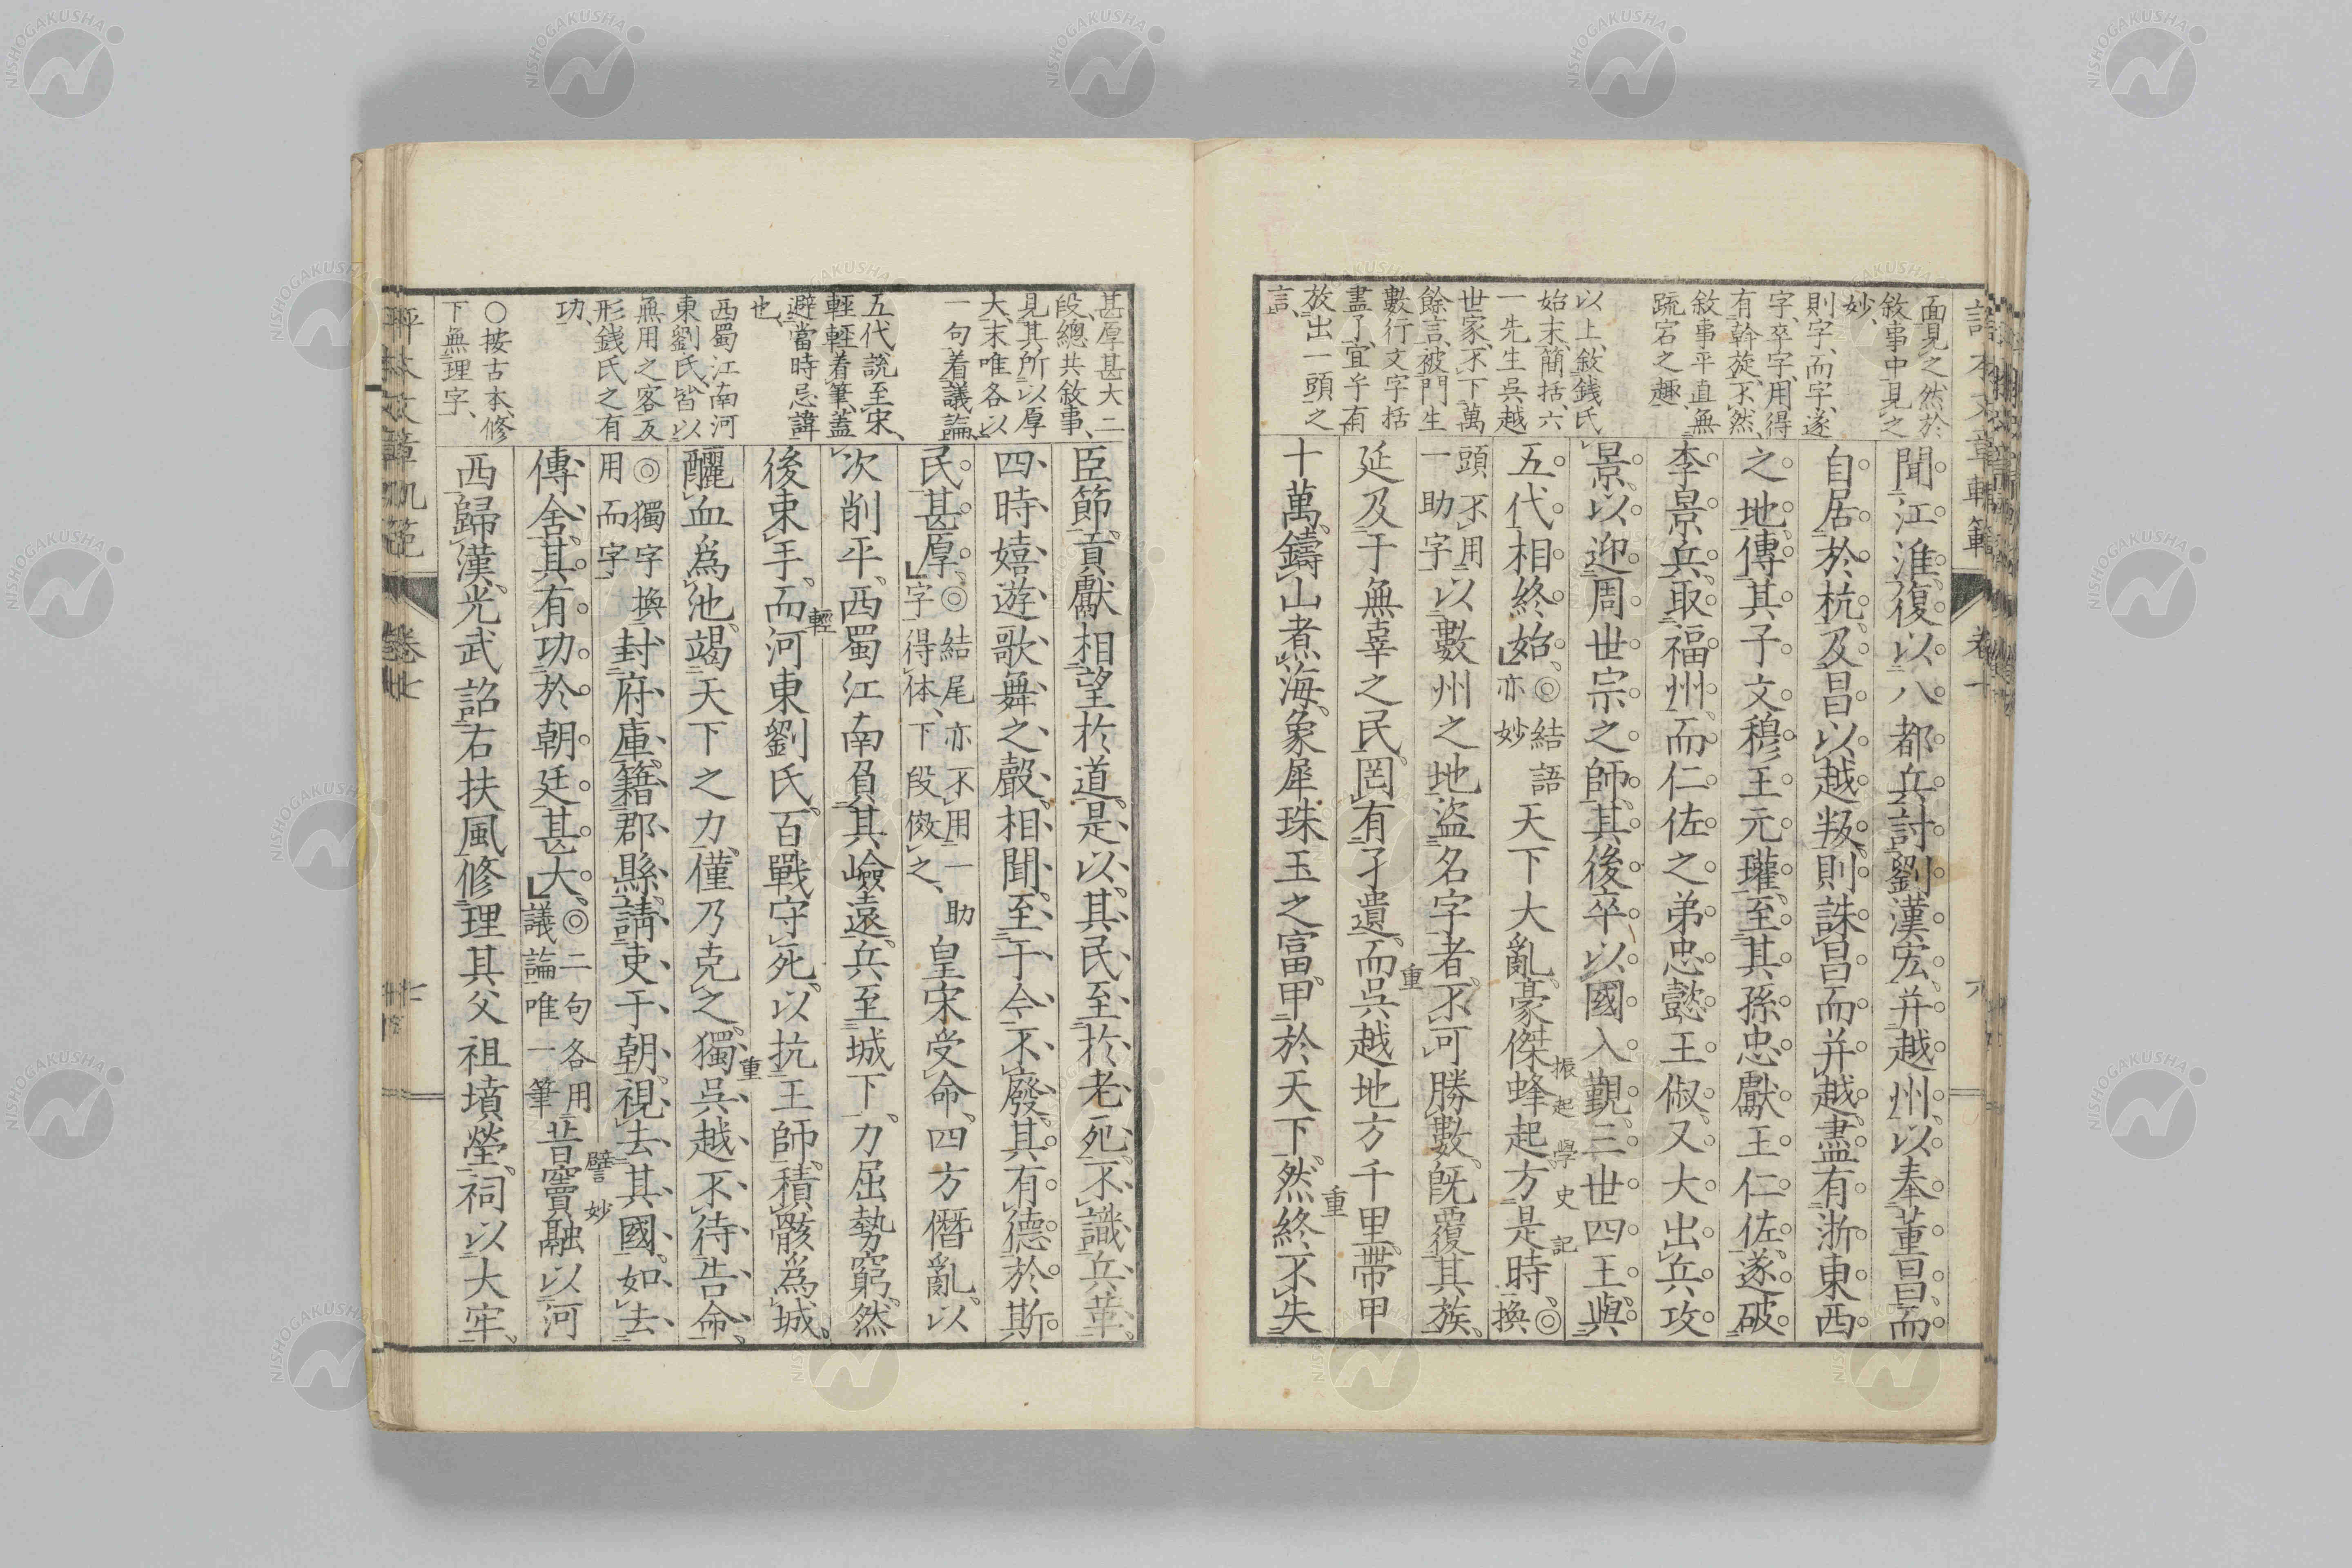 面見之然於
敘事中見之
妙、
則字、而字、遂
字、卒字、用得
有幹旋、不然、
敘事平直、無
疏宕之趣、
以上、敘錢氏
始末、簡括、六
一先生吳越
世家、不下萬
餘言、被門生
數行文字括
盡了、宜乎有
放出一頭之
言、
聞江淮復以八都兵討劉漢宏并越州以奉董昌而
自居於杭及昌以越叛則誅昌而并越盡有浙東西
之地傳其子文穆王元瓘至其孫忠獻王仁佐遂破
李景兵取福州而仁佐之弟忠懿王俶又大出兵攻
景以迎周世宗之師其後卒以國入覲三世四王與
五代相終始◎結語亦妙天下大亂豪傑蜂起方是時◎換
振起學史記
頭不用一助字以數州之地盜名字者不可勝數既覆其族
延及于無辜之民罔有孑遺而吳越地方千里帶甲
重
十萬鑄山煮海象犀珠玉之富甲於天下然終不失
重
甚厚甚大二
段、總共敘事、
見其所以厚
大、末唯各以
一句着議論、
五代說至宋、
輕輕着筆、蓋
避當時忌諱
也、
西蜀江南河
東劉氏、皆以
無用之客反
形錢氏之有
功、
○按古本、修
下無理字、
臣節貢獻相望於道是以其民至於老死不識兵革
四時嬉遊歌舞之聲相聞至于今不廢其有德於斯
民甚厚◎結尾亦不用一助字得体、下段傚之、皇宋受命四方僭亂以
次削平西蜀江南負其嶮遠兵至城下力屈勢窮然
輕
後束手而河東劉氏百戰守死以抗王師積骸為城
釃血為池竭天下之力僅乃克之獨吳越不待告命
重
◎獨字換用而字封府庫籍郡縣請吏于朝視去其國如去
傳舍其有功於朝廷甚大◎二句各用議論唯一筆昔竇融以河
譬妙
西歸漢光武詔右扶風修理其父祖墳塋祠以大牢